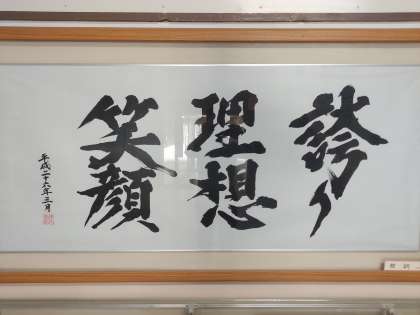 誇り
理想
笑顔
平成二十六年三月